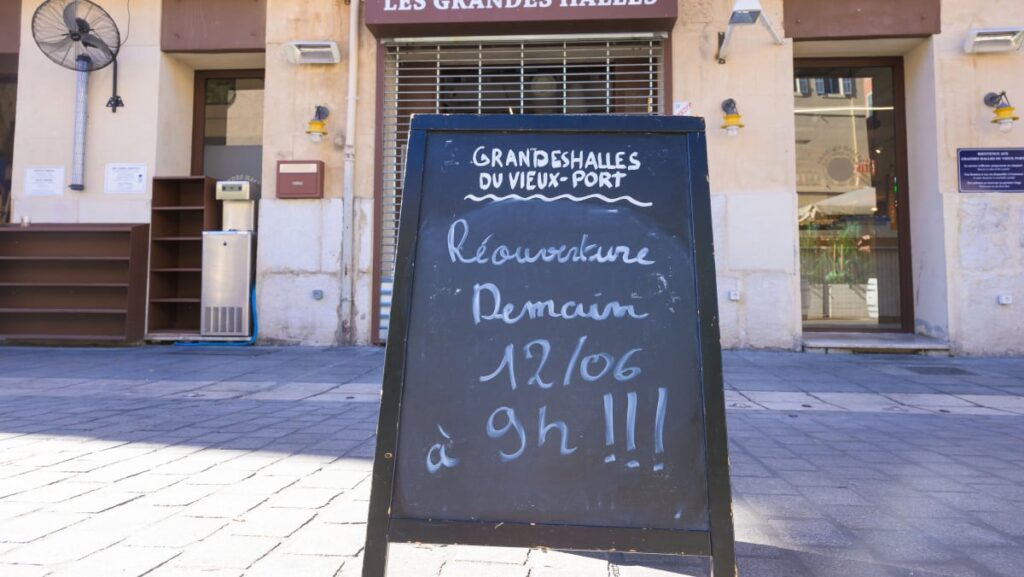 LES GRANDES HALLES
GRANDES HALLES
DU VIEUX-PORT
Réouverture
Demain
12/06
à 9h !!!
BIENVENUE AUX
GRANDES HALLES DU VIEUX-PORT